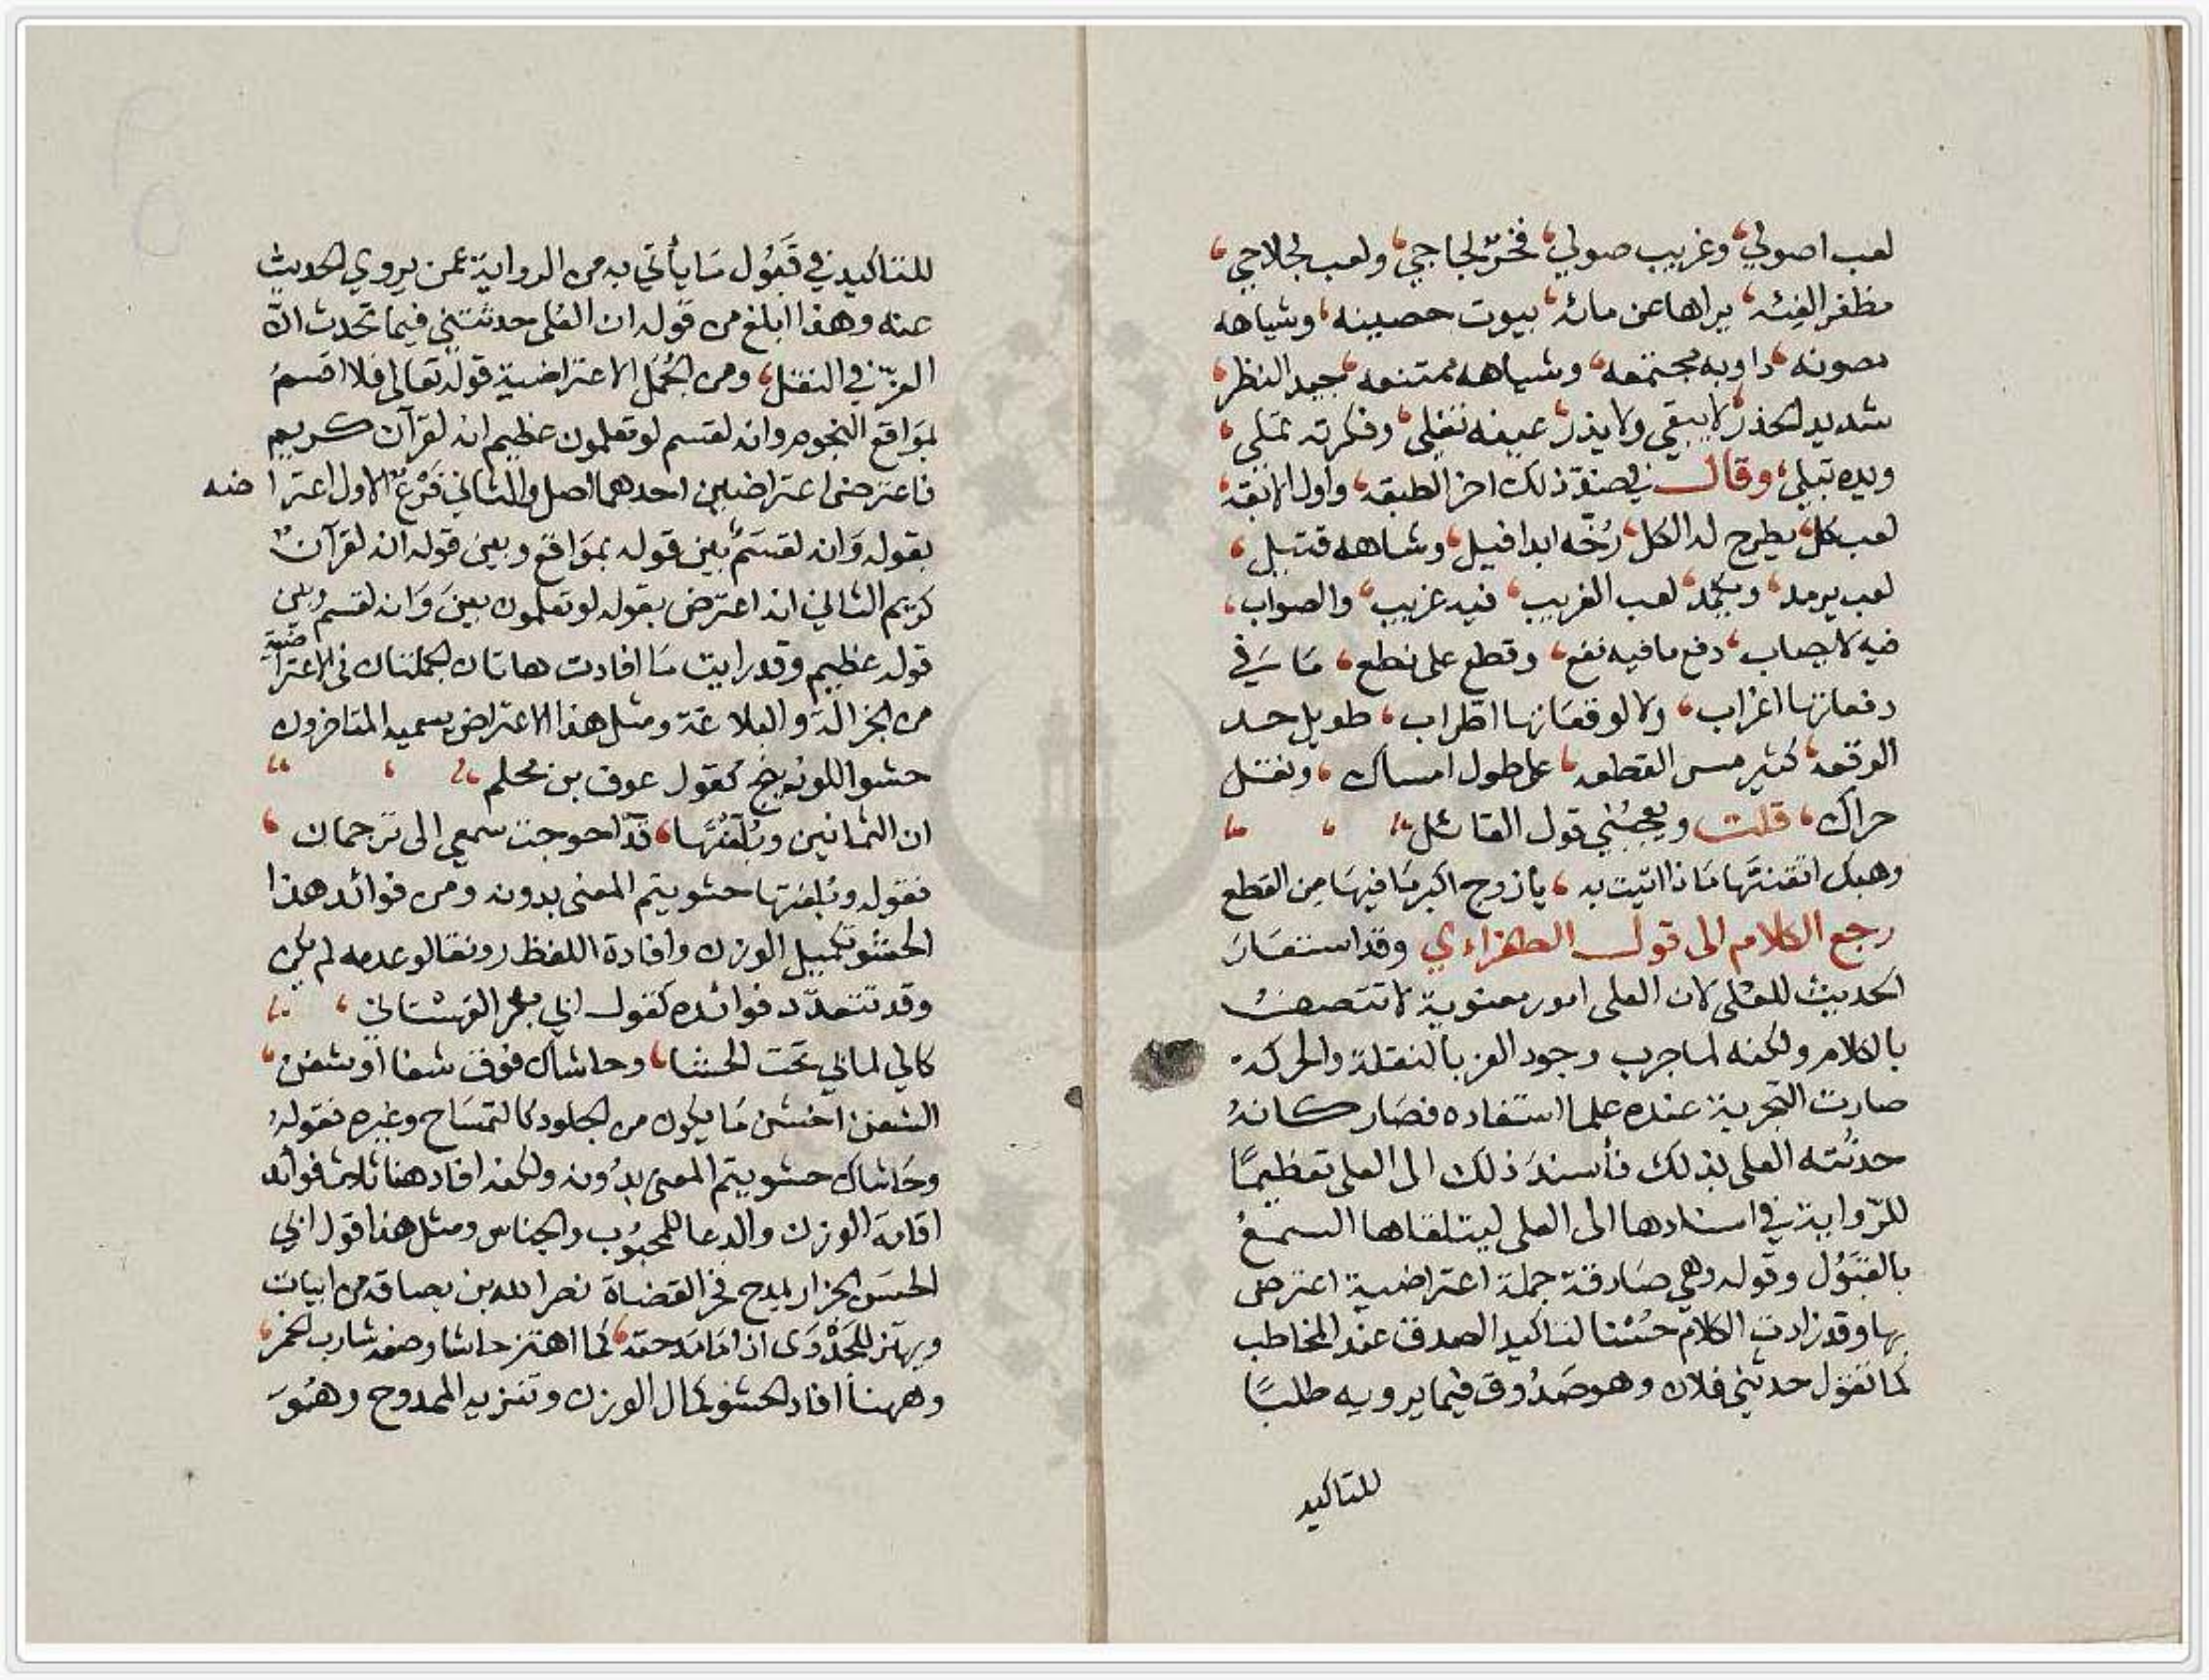 لعب اصولي، وغريب صولي، فخر لجاجي، ولعب لجلاجي،
مظفر الفئه، يراها عن مائه، بيوت حصينه، وشياهه
مصونه، دوابه مجتمعه، وشياهه ممتنعه، جيد النظر،
شديد الحذر، لا يبقي ولا يذر، عينه تغلي، وفكرته تملي،
ويده تبلي، وقال في صفة ذلك اخر الطبقه، واول الانقه،
لعب كل، يطرح له الكل، رخه ابدا فيل، وشاهه قتيل،
لعب يرمد، ويكمد، لعب الغريب، فيه غريب، والصواب،
فيه لا يصاب، دفع ما فيه نفع، وقطع على نطع، ما في
دفعاتها اغراب، ولا لوقعاتها اطراب، طويل حد
الوقعه، كثير مس القطعه، على طول امساك، وثقل
حراك، قلت ويعجبني قول القائل
وهبك اتقنتها ماذا اتيت به، يا زوج اكبر ما فيها من القطع
رجع الكلام الى قول الطغراءي وقد استعار
الحديث للعلى لان العلى امور معنوية لا تتصف
بالكلام ولكنه لما جرب وجود العز بالنقلة والحركة
صارت التجربة عنده علما استفاده فصار كانه
حدثته العلى بذلك فأسند ذلك الى العلى تعظيمًا
للرواية في اسنادها الى العلى ليتلقاها السمع
بالقبول وقوله وهي صادقة جملة اعتراضية اعترض
بها وقد زادت الكلام حسنا لتاكيد الصدق عند المخاطب
كما تقول حدثني فلان وهو صدوق فيما يرويه طلبًا
للتاكيد
للتاكيد في قبول ما يأتي به من الرواية عمن يروي الحديث
عنه وهذا ابلغ من قوله ان العلى حدثتني فيما تحدث انّ
العزّ في النقل، ومن الجمل الاعتراضية قوله تعالى فلا اقسم
بمواقع النجوم وانه لقسم لو تعلمون عظيم انه لقرآن كريم
فاعترض اعتراضين احدهما اصل والثاني فرع الاول اعتراضه
بقوله وانه لقسم بين قوله بمواقع وبين قوله انه لقرآن
كريم الثاني انه اعترض بقوله لو تعلمون بين وانه لقسم وبين
قوله عظيم وقد رايت ما افادت هاتان الجملتان في الاعتراضية
من الجزالة والبلاغة ومثل هذا الاعتراض يسميه المتاخرون
حشو اللوزينج كقول عوف بن محلم
ان الثمانين وبُلّغتَها، قد احوجت سمعي الى ترجمان،
فقوله وبلغتها حشو يتم المعنى بدونه ومن فوائد هذا
الحشو تكميل الوزن وافادة اللفظ رونقا لو عدمه لم يكن
وقد تتعدّد فوائده كقول ابي بكر القهستاني،
كالي لماني تحت الحشا، وحاشاك فوق شفا او شفن،
الشفن اخشن ما يكون من الجلود كالتمساح وغيره فقوله
وحاشاك حشو يتم المعنى بدونه ولكنه افاد هنا ثلاث فوائد
اقامة الوزن والدعا للمحبوب والجناس ومثل هذا قول ابي
الحسن الجزار يمدح فخر القضاة نصر الله بن بصاقه من ابيات
ويهتز للجدوى اذا ما مدحته، كما اهتز حاشا وصفه شارب الخمر،
وههنا افاد الحشو كمال الوزن وتنزيه الممدوح وهو